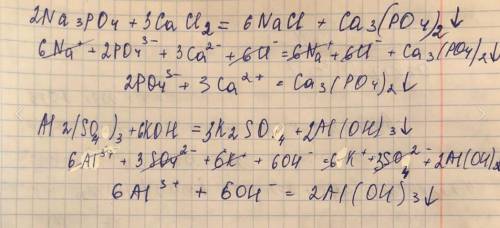 2Na3PO4 + 3CaCl2 = 6NaCl + Ca3(PO4)2↓
6Na⁺ + 2PO4³⁻ + 3Ca²⁻ + 6Cl⁻ = 6Na⁺ + 6Cl⁻ + Ca3(PO4)2↓
2PO4³⁻ + 3Ca²⁺ = Ca3(PO4)2↓
Al2(SO4)3 + 6KOH = 3K2SO4 + 2Al(OH)3↓
6Al³⁺ + 3SO4²⁻ + 6K⁺ + 6OH⁻ = 6K⁺ + 3SO4²⁻ + 2Al(OH)3
6Al³⁺ + 6OH⁻ = 2Al(OH)3↓